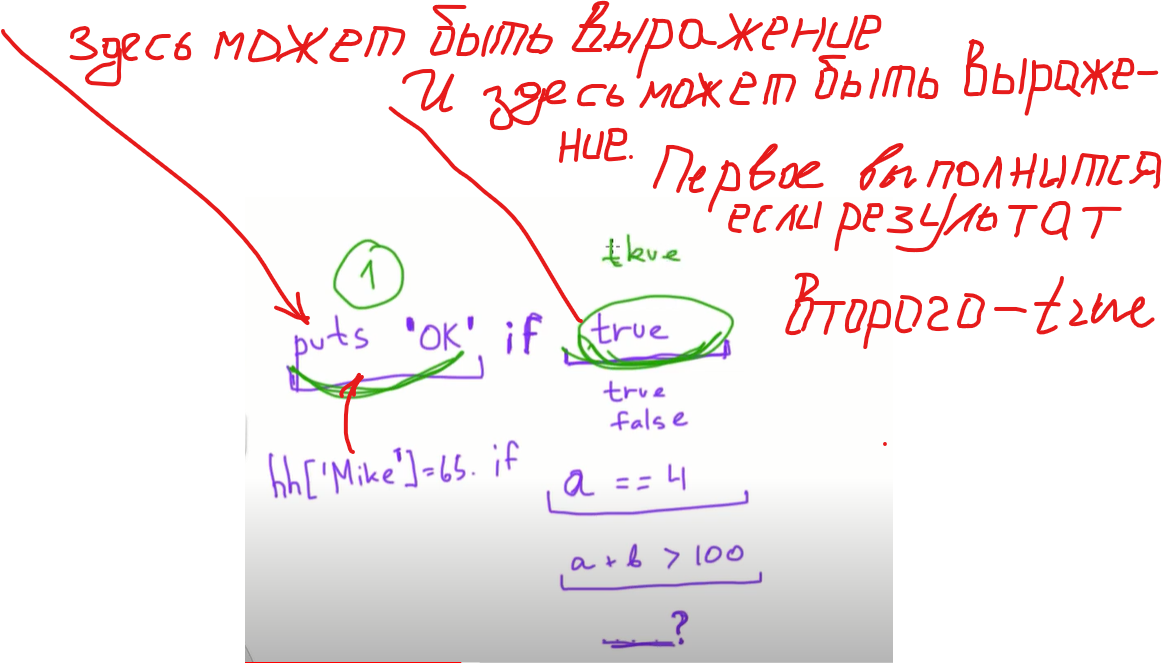 Здесь может быть выражение
И здесь может быть выраже-
ние.
Первое выполнится
если результат
Второго - true
1
true
puts 'OK' if true
true
false
hh['Mike']=65. if
a == 4
a + b > 100
____?